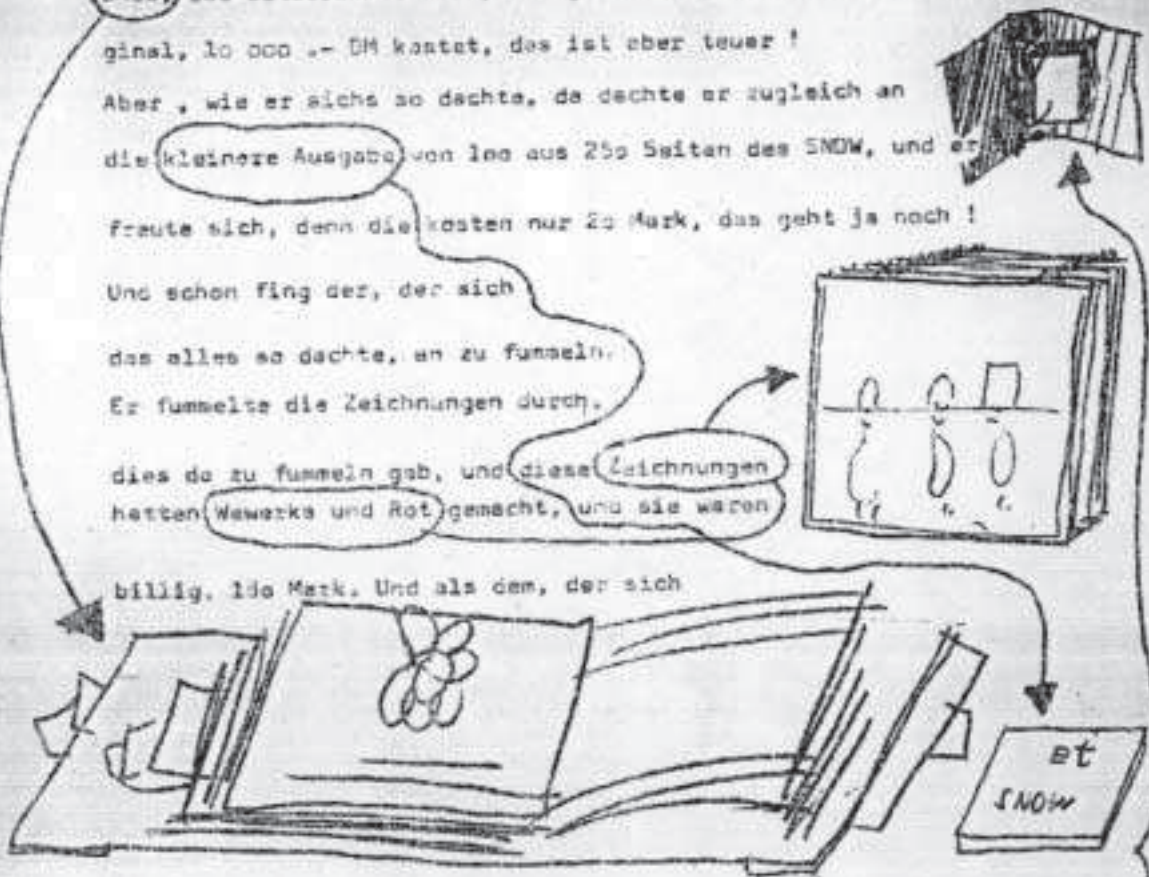 ginal, 10 000 .- DM kostet, das ist aber teuer !
Aber , wie er sichs so dachte, da dachte er zugleich an
die kleinere Ausgabe von 100 aus 250 Seiten des SNOW, und er
freute sich, denn die kosten nur 20 Mark, das geht ja noch !
Und schon fing der, der sich
das alles so dachte, an zu fummeln.
Er fummelte die Zeichnungen durch,
dies da zu fummeln gab, und diese Zeichnungen
hatten Wewerka und Rot gemacht, und sie waren
billig. Mark. Und als dem, der sich
et
SNOW